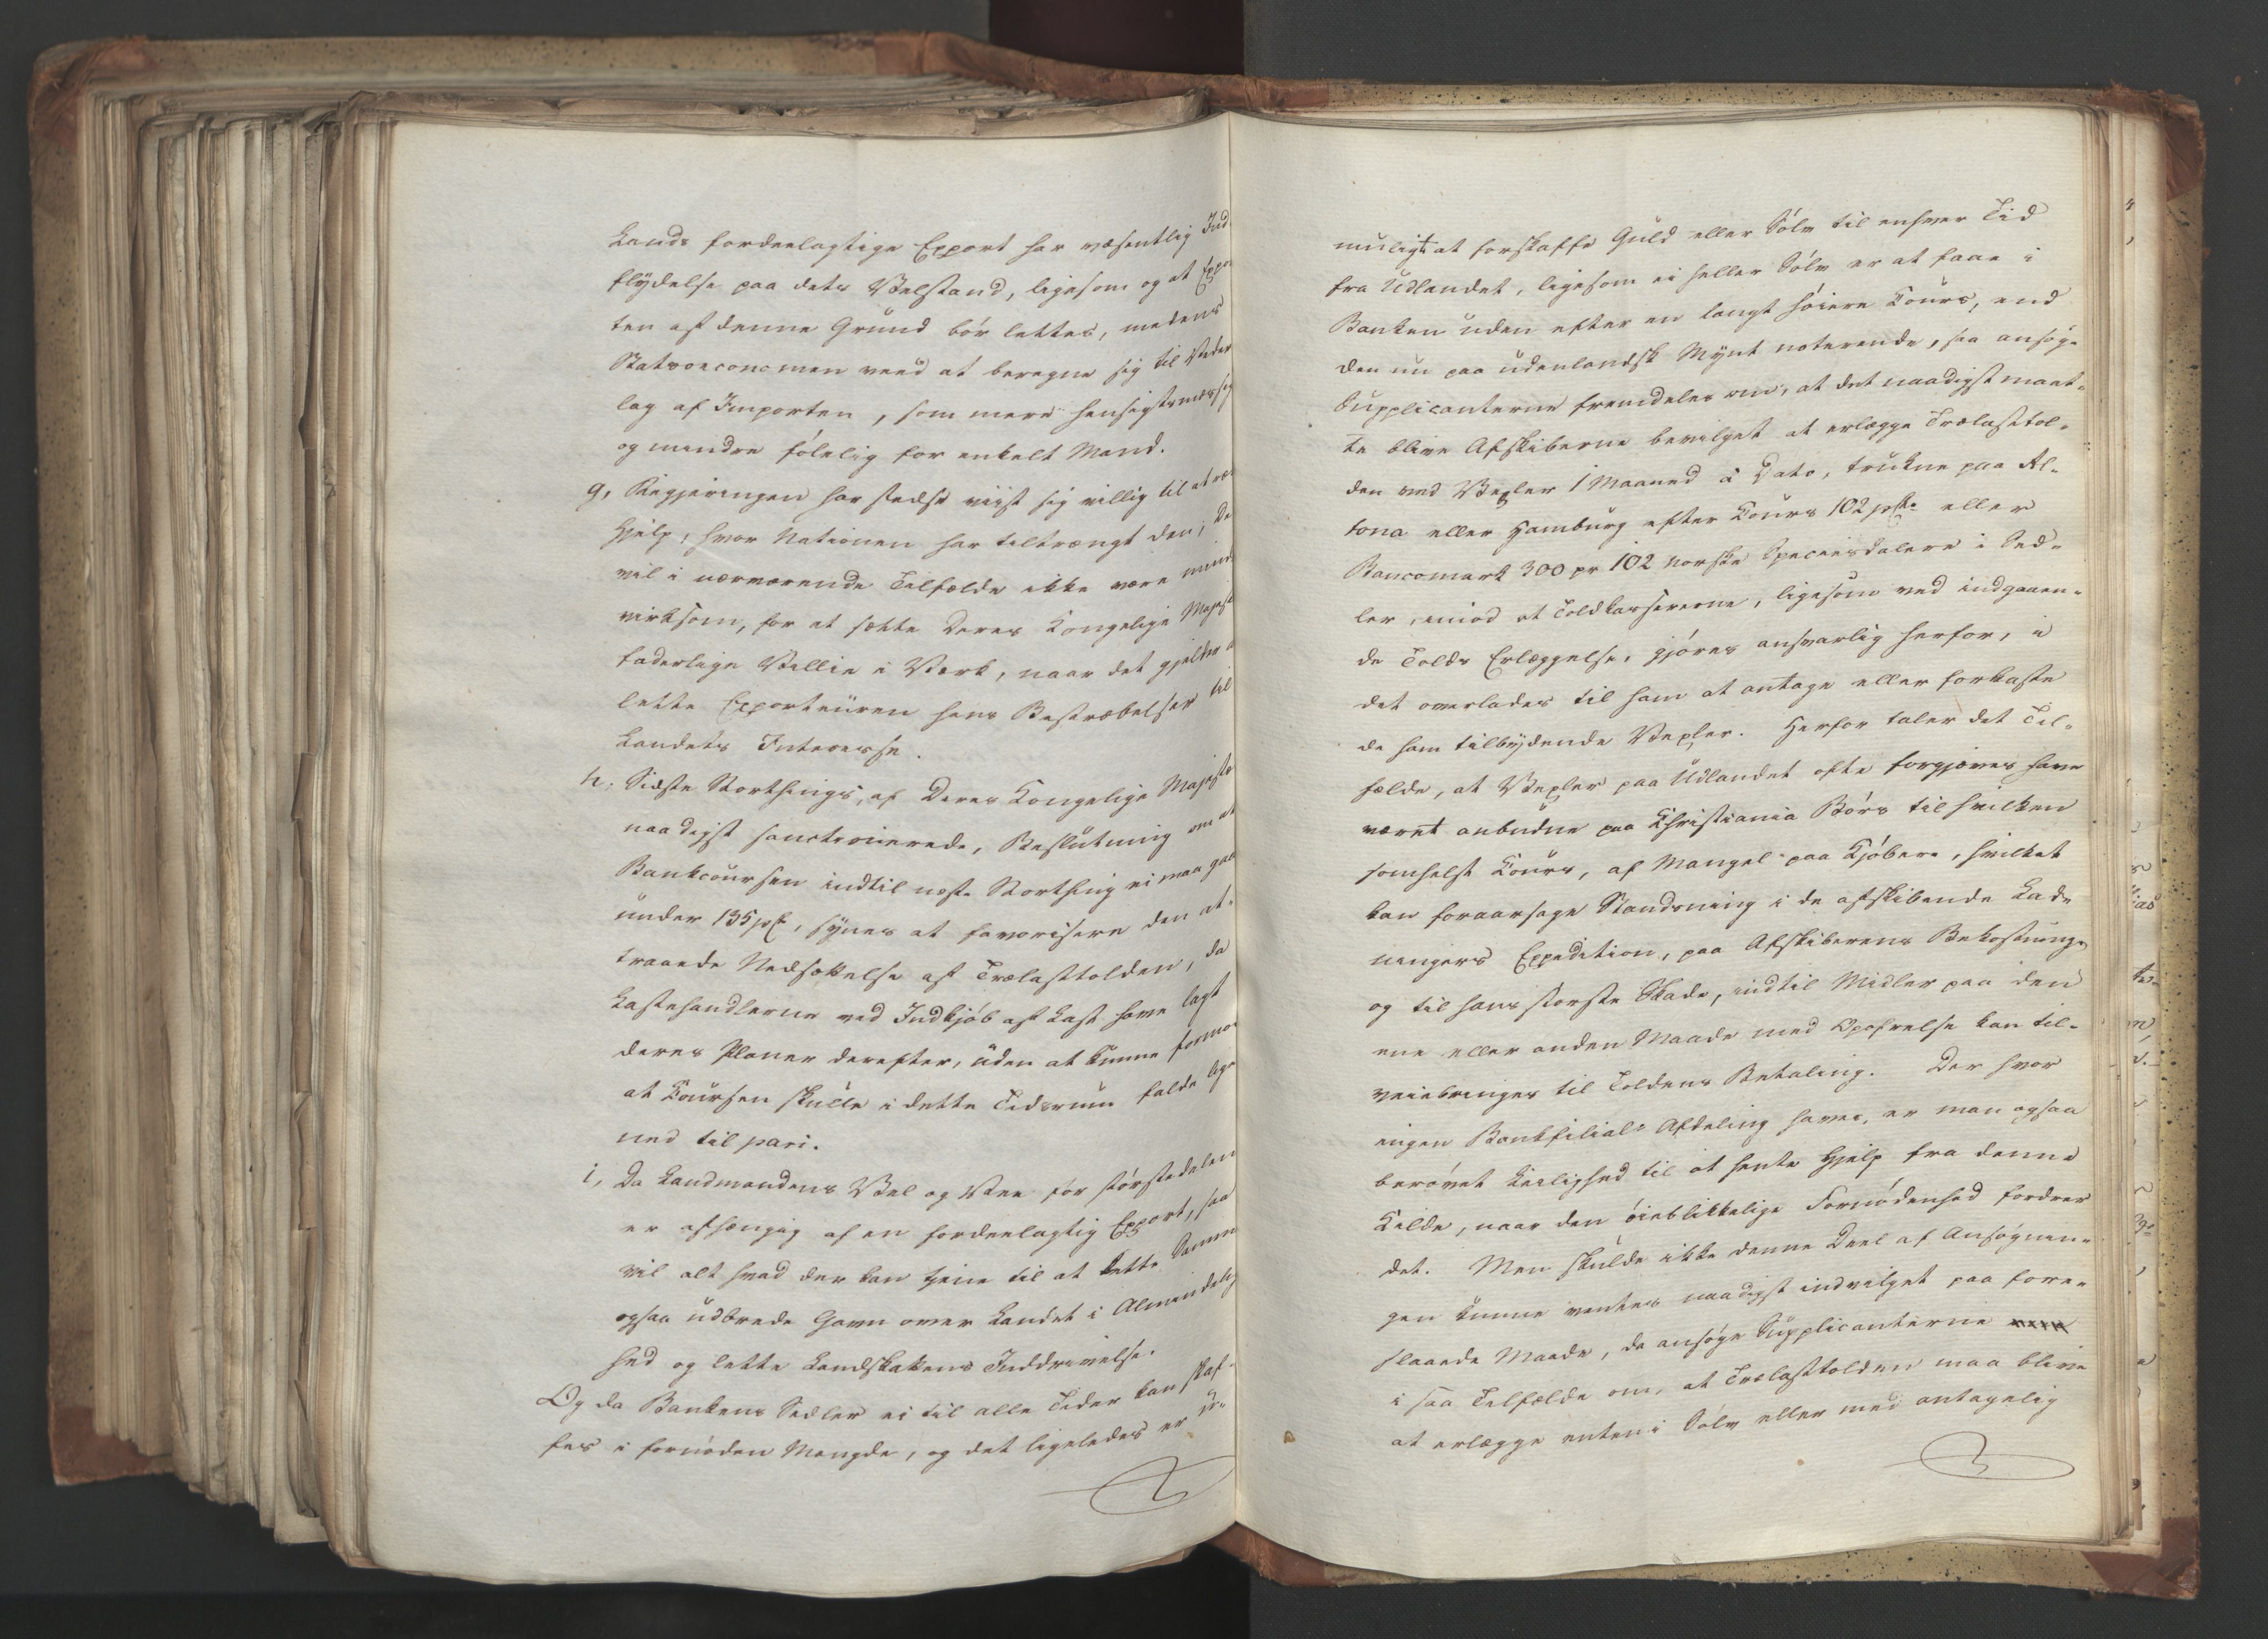 Lands fordeelagtige Export har væsentlig Ind
flydelse paa dets Velstand, ligesom og at Expo
ten af denne Grund bör lettes, medens
Statsoeconomen veed at beregne sig til Veder
lag af Importen, som mere hensigtsmæssig
og mindre fölelig for enkelt Mand.
g, Regjeringen har stedse viist sig villig til at
Hjelp, hvor Nationen har tiltrængt den; De
vil i nærværende Tilfælde ikke være mind
virksom, for at sætte Deres Kongelige Majest
faderlige Villie i Værk, naar det gjelder a
lette Exporteuren hans Bestræbelser til
Landets Interesse.
h, Sidste Storthings, af Deres Kongelige Majestæ
naadigst sanctionerede, Beslutning om at
Bankcoursen indtil næste Storthing ei maa gaa
under 135 pCt, synes at favorisere den at-
traaede Nedsættelse af Trælasttolden, da
Lasthandlerne ved Indkjöb af Last have lagt
deres Planer derefter, uden at kunne formo
at Coursen skulle i dette Tidsrum falde lige
ned til pari.
i, Da Landmandens Vel og Vee for störstedelen
er afhængig af en fordeelagtig Export, saa
vil alt hvad der kan tjene til at lette Samme
ogsaa udbrede Gavn over Landet i Almindelig
hed og lette Landskatens Inddrivelse.
Og da Bankens Sedler ei til alle Tider kan skaf-
fes i fornöden Mengde, og det ligeledes er u-
muligt at forskaffe Guld eller Sölv til enhver Tid
fra Udlandet, ligesom ei heller Sölv er at faae i
Banken uden efter en langt höiere Cours, end
den nu paa udenlandsk Mynt noterende, saa ansöge
Supplicanterne fremdeles om, at det naadigst maat-
te blive Afskiberne bevilget at erlægge Trælasttol-
den ved Vexler 1 Maaned à Dato, trukne paa Al-
tona eller Hamburg efter Cours 102 pCt. eller
Bancomark 300 pr 102 norske Speciesdalere i Sed-
ler, imod at Toldkassererne, ligesom ved indgaaen-
de Tolds Erlæggelse, gjöres ansvarlig herfor, i
det overlades til ham at antage eller forkaste
de ham tilbydende Vexler. Herfor taler det Til-
fælde, at Vexler paa Udlandet ofte forgjæves have
været anbudne paa Christiania Börs til hvilken
somhelst Cours, af Mangel paa Kjöbere, hvilket
kan foraarsage Standsning i de afskibende Lad-
ningers Expedition, paa Afskiberens Bekostning
og til hans störste Skade, indtil Midler paa den
ene eller anden Maade med Opofrelse kan til-
veiebringes til Toldens Betaling. Der hvor
ingen Bankfilial-Afdeling haves, er man ogsaa
berövet Leilighed til at hente Hjelp fra denne
Kilde, naar den öieblikkelige Fornödenhed fordrer
det. Men skulde ikke denne Deel af Ansögnin-
gen kunne ventes naadigst indvilget paa fore-
slaaede Maade, da ansöge Supplicanterne
i saa Tilfælde om, at Trælasttolden maa blive
at erlægge enten i Sölv eller med antagelig